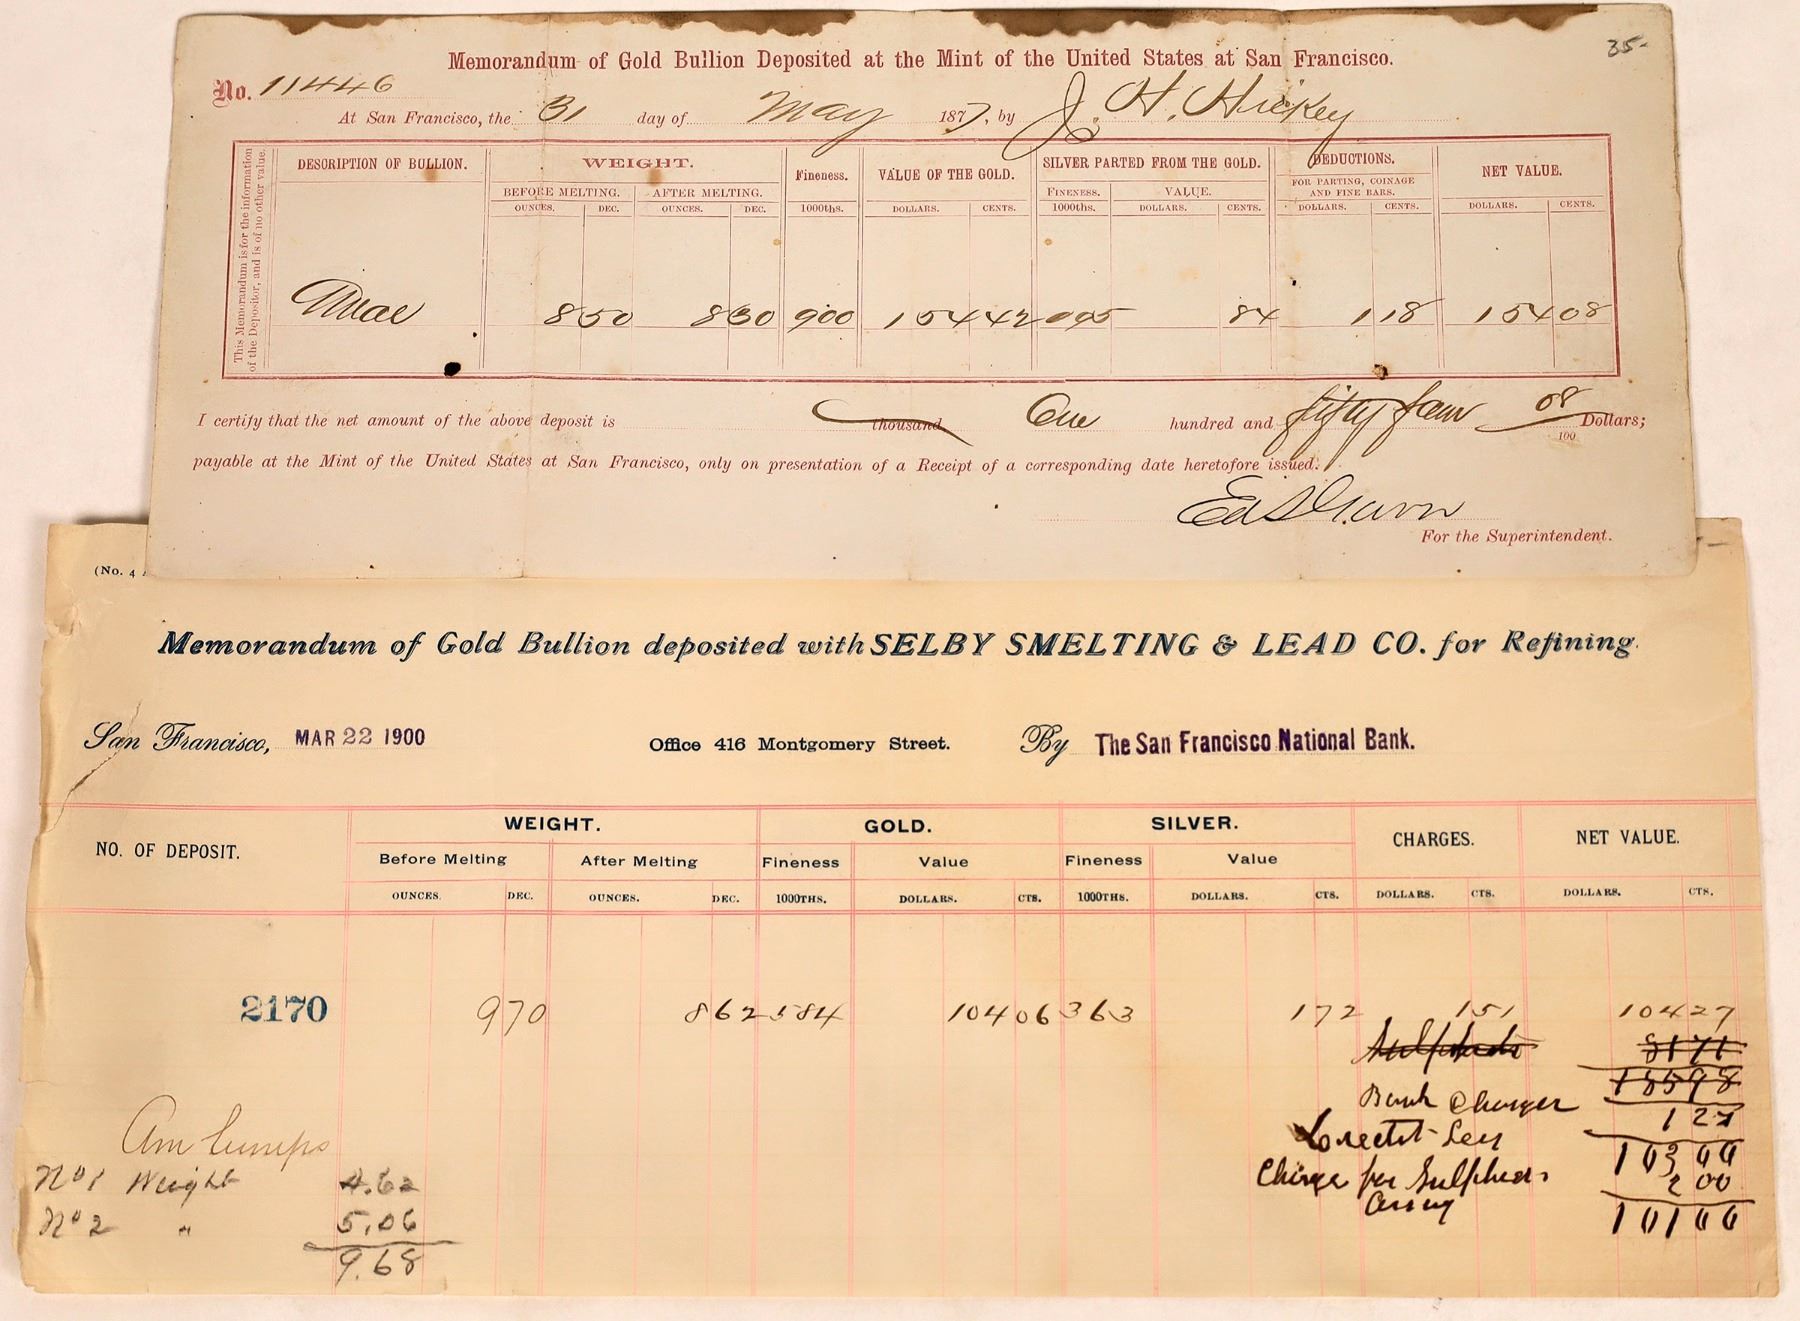 35-
Memorandum of Gold Bullion Deposited at the Mint of the United States at San Francisco.
No. 11446
At San Francisco, the 31 day of May 1877, by J. H. Hickey
This Memorandum is for the information of the Depositor, and is of no other value.
DESCRIPTION OF BULLION. WEIGHT. Fineness. VALUE OF THE GOLD. SILVER PARTED FROM THE GOLD. DEDUCTIONS. NET VALUE.
BEFORE MELTING. AFTER MELTING. FINENESS. VALUE. FOR PARTING, COINAGE AND FINE BARS.
OUNCES. DEC. OUNCES. DEC. 1000ths. DOLLARS. CENTS. 1000ths. DOLLARS. CENTS. DOLLARS. CENTS. DOLLARS. CENTS.
8 50 8 30 900 154 42 095 84 1 18 154 08
I certify that the net amount of the above deposit is thousand One hundred and fifty four 08/100 Dollars;
payable at the Mint of the United States at San Francisco, only on presentation of a Receipt of a corresponding date heretofore issued.
For the Superintendent.
(No. 4
Memorandum of Gold Bullion deposited with SELBY SMELTING & LEAD CO. for Refining.
San Francisco, MAR 22 1900 Office 416 Montgomery Street. By The San Francisco National Bank.
NO. OF DEPOSIT. WEIGHT. GOLD. SILVER. CHARGES. NET VALUE.
Before Melting After Melting Fineness Value Fineness Value
OUNCES. DEC. OUNCES. DEC. 1000THS. DOLLARS. CTS. 1000THS. DOLLARS. CTS. DOLLARS. CTS. DOLLARS. CTS.
2170 9 70 8 62 584 104 06 363 1 72 1 51 104 27
Sulphurets 81 71
185 98
Bank Charges 1 27
103 00
Charge for Sulphurets 2 00
Assay 101 00
Am Lumps
No 1 Weight 4.62
No 2 " 5.06
9.68